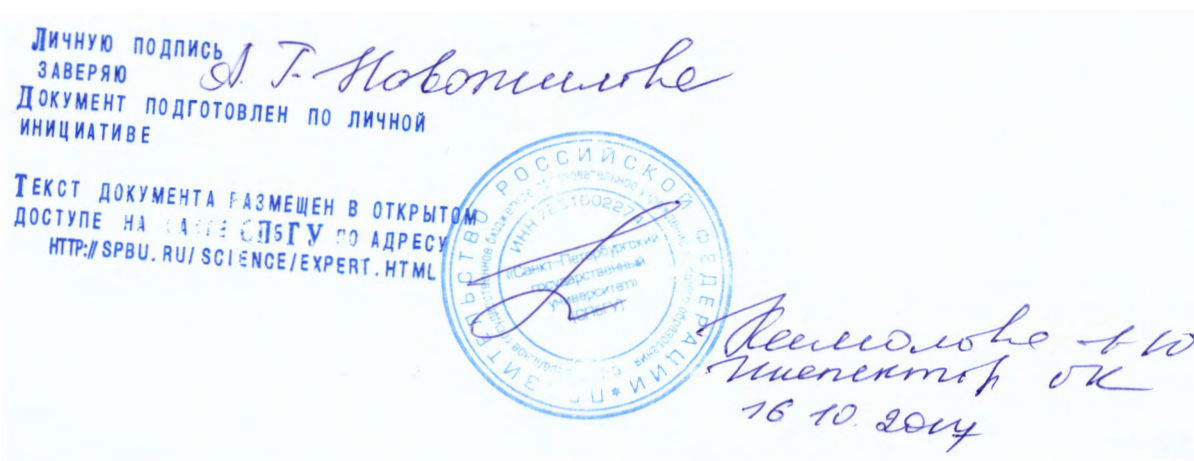 Личную подпись
заверяю
А. Г. Новожилова
Документ подготовлен по личной
инициативе
Текст документа размещен в открытом
доступе на сайте СПбГУ по адресу
HTTP://SPBU.RU/SCIENCE/EXPERT.HTML
ПРАВИТЕЛЬСТВО РОССИЙСКОЙ ФЕДЕРАЦИИ *
ИНН 780100227
«Санкт-Петербургский
государственный
университет»
(СПбГУ)
инспектор ОК
16 10. 2017